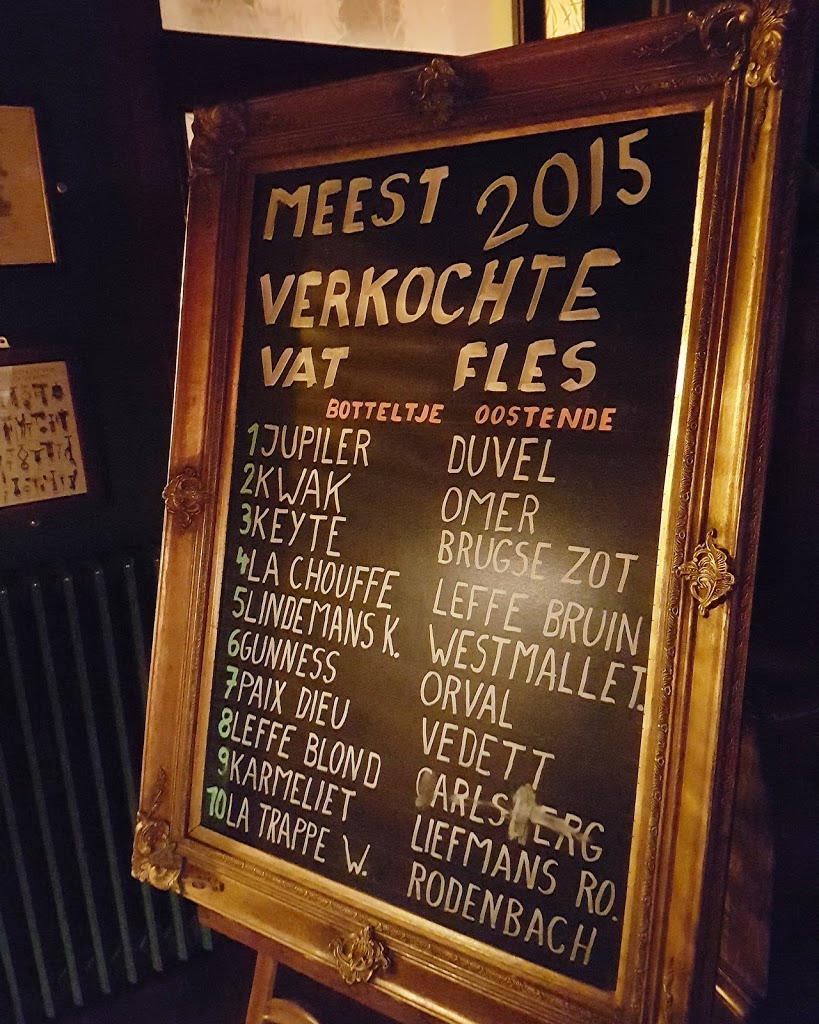 MEEST 2015
VERKOCHTE
VAT FLES
BOTTELTJE OOSTENDE
1 JUPILER DUVEL
2 KWAK OMER
3 KEYTE BRUGSE ZOT
4 LA CHOUFFE LEFFE BRUIN
5 LINDEMANS K. WESTMALLE T.
6 GUNNESS ORVAL
7 PAIX DIEU VEDETT
8 LEFFE BLOND CARLSBERG
9 KARMELIET LIEFMANS RO.
10 LA TRAPPE W. RODENBACH